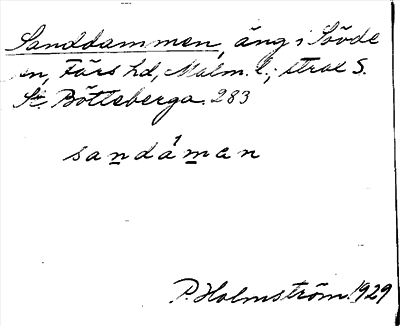 Sanddammen, äng i Sövde
sn, Färs hd, Malm. l.; strax S.
St. Bötteberga. 283
sandåman
P. Holmström. 1929